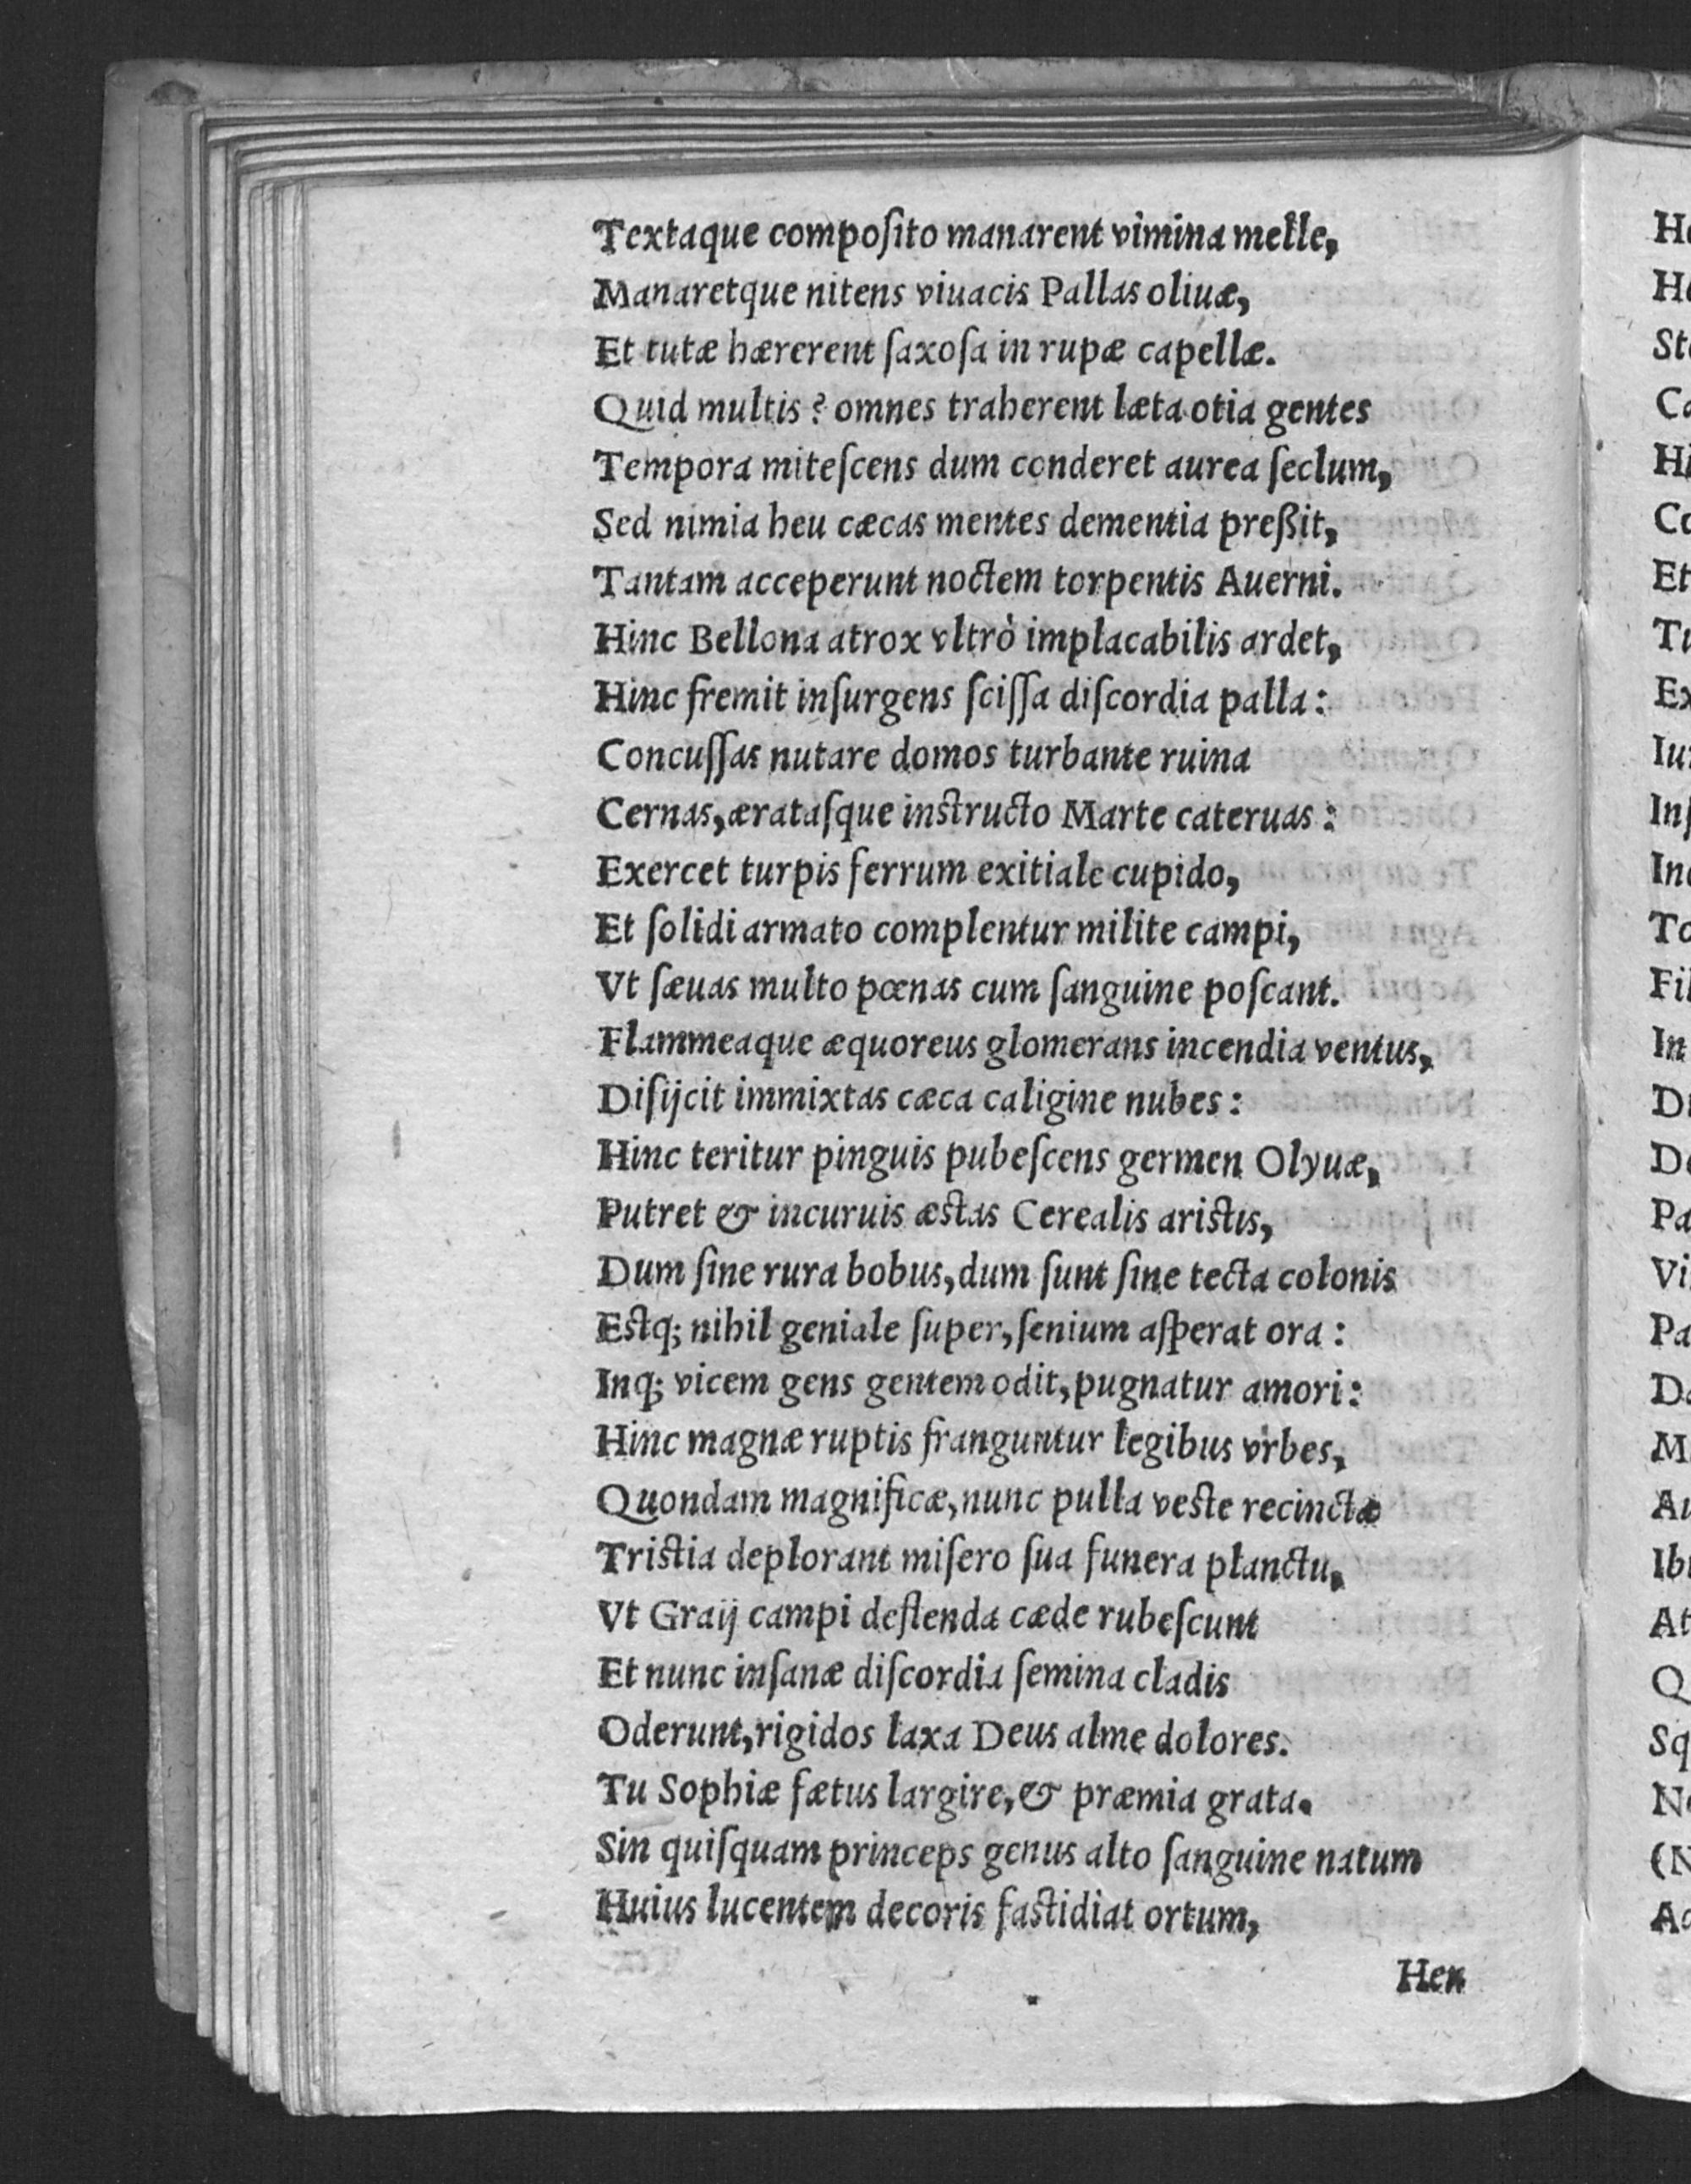 Textaque compoſito manarent vimina melle,
Manaretque nitens viuacis Pallas oliuæ,
Et tutæ hærerent ſaxoſa in rupæ capellæ.
Quid multis? omnes traherent læta otia gentes
Tempora miteſcens dum conderet aurea ſeclum,
Sed nimia heu cæcas mentes dementia preßit,
Tantam acceperunt noctem torpentis Auerni.
Hinc Bellona atrox vltrò implacabilis ardet,
Hinc fremit inſurgens ſciſſa diſcordia palla:
Concuſſas nutare domos turbante ruina
Cernas, ærataſque inſtructo Marte cateruas:
Exercet turpis ferrum exitiale cupido,
Et ſolidi armato complentur milite campi,
Vt ſæuas multo pœnas cum ſanguine poſcant.
Flammeaque æquoreus glomerans incendia ventus,
Diſijcit immixtas cæca caligine nubes:
Hinc teritur pinguis pubeſcens germen Olyuæ,
Putret & incuruis æſtas Cerealis ariſtis,
Dum ſine rura bobus, dum ſunt ſine tecta colonis
Eſtq; nihil geniale ſuper, ſenium aſperat ora:
Inq; vicem gens gentem odit, pugnatur amori:
Hinc magnæ ruptis franguntur legibus vrbes,
Quondam magnificæ, nunc pulla veſte recinctæ
Triſtia deplorant miſero ſua funera planctu,
Vt Graij campi deflenda cæde rubeſcunt
Et nunc inſanæ diſcordia ſemina cladis
Oderunt, rigidos laxa Deus alme dolores.
Tu Sophiæ fætus largire, & præmia grata.
Sin quiſquam princeps genus alto ſanguine natum
Huius lucentem decoris faſtidiat ortum,
Heu